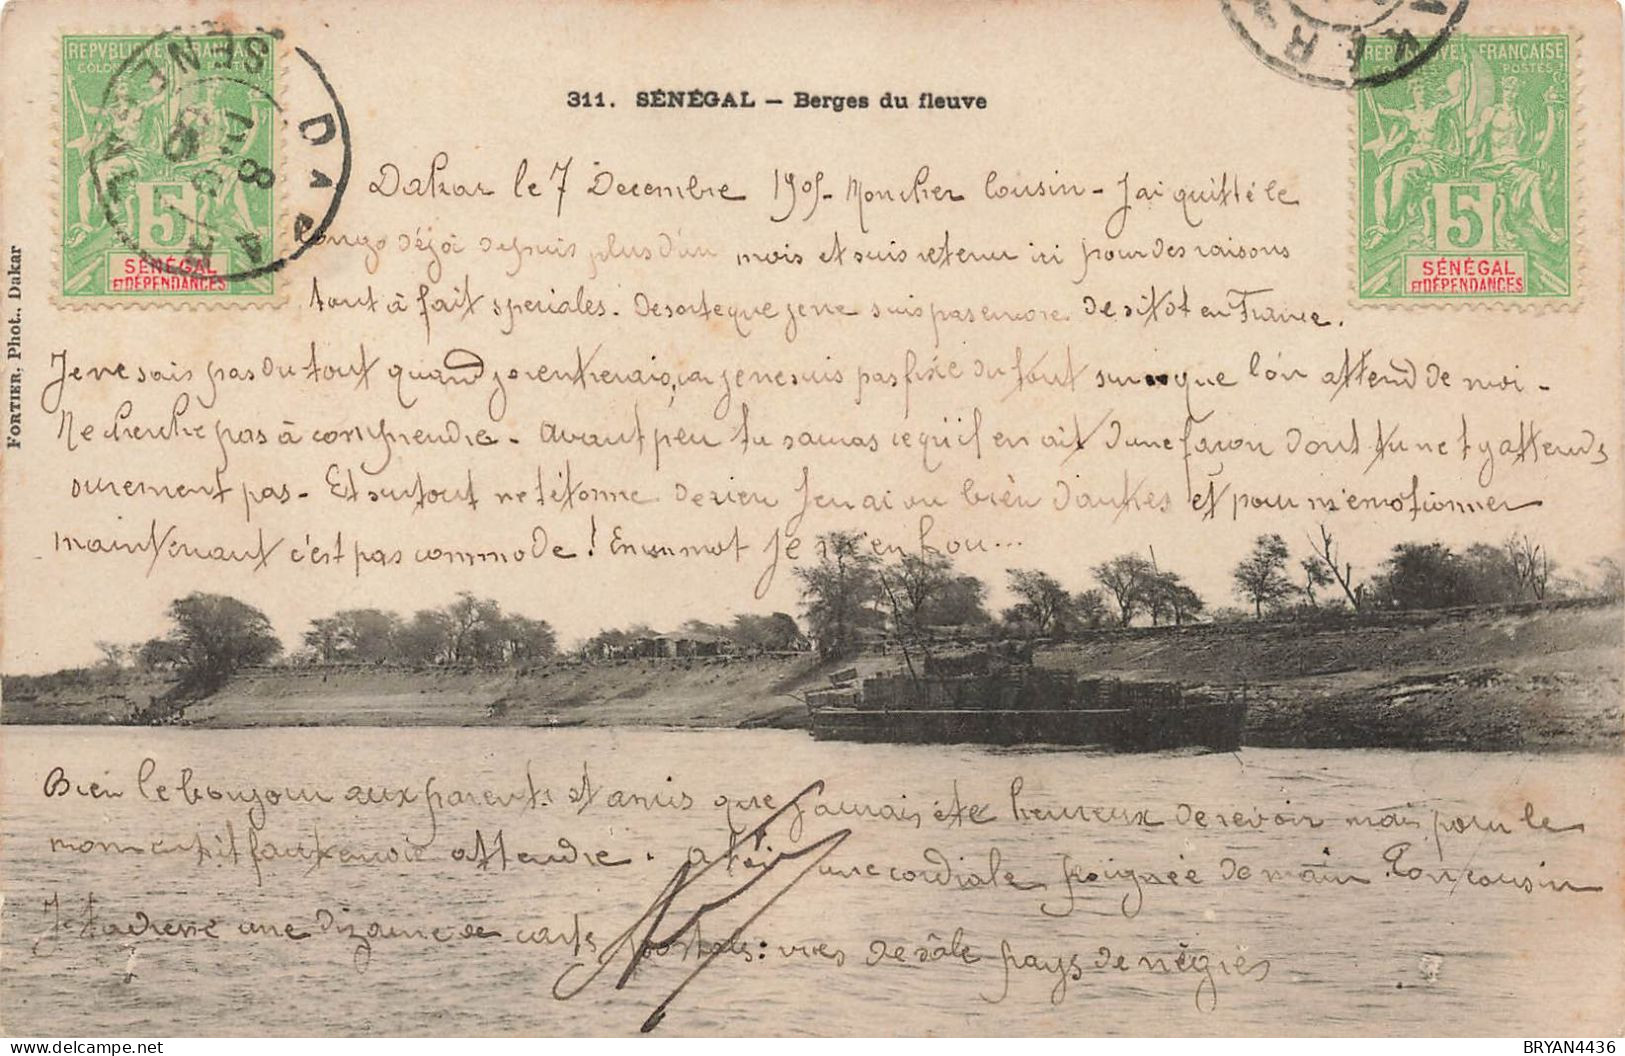 REPVBLIQVE FRANÇAISE
COLONIES POSTES
5
SÉNÉGAL
ET DÉPENDANCES
SENEGAL
DAKAR
REPVBLIQVE FRANÇAISE
POSTES
5
SÉNÉGAL
ET DÉPENDANCES
311. SÉNÉGAL — Berges du fleuve
FORTIER, Phot., Dakar
Dakar le 7 Decembre 1905 - Mon cher Cousin - J'ai quitté le
Congo déjà depuis plus d'un mois et suis retenu ici pour des raisons
tout à fait speciales. De sorte que je ne suis pas encore de sitôt en France.
Je ne sais pas du tout quand je rentrerais, car je ne suis pas fixé du tout sur ce que l'on attend de moi -
Ne cherche pas à comprendre - Avant peu tu sauras ce qu'il en ait d'une façon dont tu ne t'y attends
surement pas - Et surtout ne t'étonne de rien J'en ai vu bien d'autres et pour m'emotionner
maintenant c'est pas commode ! En un mot Je m'en fou...
Bien le bonjour aux parents et amis que j'aurais été heureux de revoir mais pour le
moment il faut encore attendre. A toi une cordiale poignée de main Ton cousin
Je t'adresse une dizaine de cartes postales : vues de sale pays de nègres
BRYAN4436